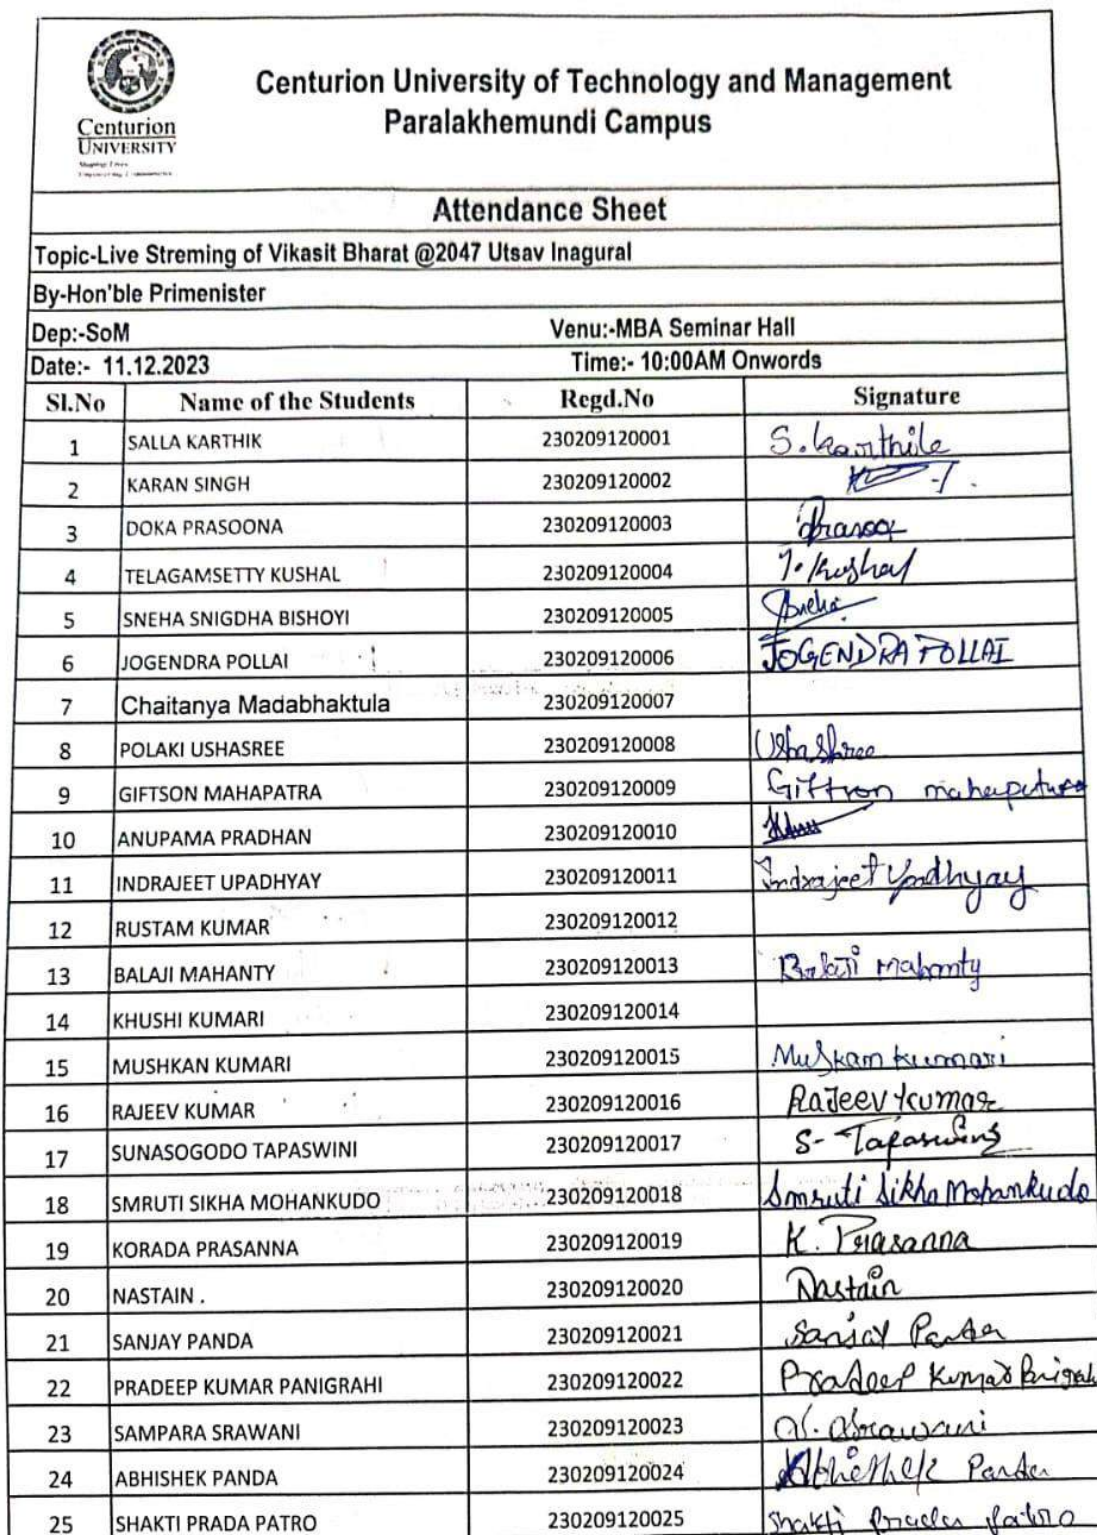 Centurion
UNIVERSITY
Shaping Lives...
Empowering Communities...
Centurion University of Technology and Management
Paralakhemundi Campus
Attendance Sheet
Topic-Live Streming of Vikasit Bharat @2047 Utsav Inagural
By-Hon'ble Primenister
Dep:-SoM Venu:-MBA Seminar Hall
Date:- 11.12.2023 Time:- 10:00AM Onwords
Sl.No Name of the Students Regd.No Signature
1 SALLA KARTHIK 230209120001 S. Karthik
2 KARAN SINGH 230209120002
3 DOKA PRASOONA 230209120003
4 TELAGAMSETTY KUSHAL 230209120004 T. Kushal
5 SNEHA SNIGDHA BISHOYI 230209120005 Sneha
6 JOGENDRA POLLAI 230209120006 JOGENDRA POLLAI
7 Chaitanya Madabhaktula 230209120007
8 POLAKI USHASREE 230209120008 Ushashree
9 GIFTSON MAHAPATRA 230209120009 Giftson mahapatra
10 ANUPAMA PRADHAN 230209120010
11 INDRAJEET UPADHYAY 230209120011 Indrajeet Upadhyay
12 RUSTAM KUMAR 230209120012
13 BALAJI MAHANTY 230209120013 Balaji Mahanty
14 KHUSHI KUMARI 230209120014
15 MUSHKAN KUMARI 230209120015 Muskan kumari
16 RAJEEV KUMAR 230209120016 Rajeev kumar
17 SUNASOGODO TAPASWINI 230209120017 S- Tapaswini
18 SMRUTI SIKHA MOHANKUDO 230209120018 Smruti Sikha Mohankudo
19 KORADA PRASANNA 230209120019 K. Prasanna
20 NASTAIN . 230209120020 Nastain
21 SANJAY PANDA 230209120021 Sanjay Panda
22 PRADEEP KUMAR PANIGRAHI 230209120022 Pradeep Kumar Panigrahi
23 SAMPARA SRAWANI 230209120023 S. Srawani
24 ABHISHEK PANDA 230209120024 Abhishek Panda
25 SHAKTI PRADA PATRO 230209120025 Shakti Prada Patro